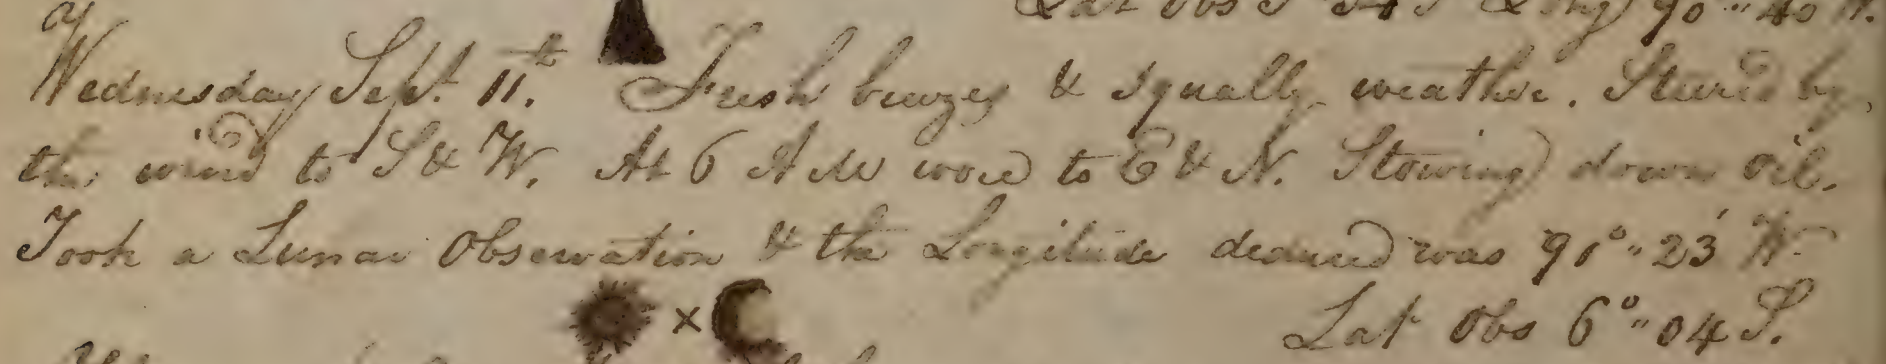 Lat Obs 5° 54 S Long 90°" 40 W.
Wednesday Sept. 11th. Fresh breezes & squally weather. Steered by
the wind to S & W. At 6 A M wore to E & N. Stowing down oil.
Took a Lunar Observation & the Longitude deduced was 91°" 23' W.
Lat Obs 6°" 04 S.